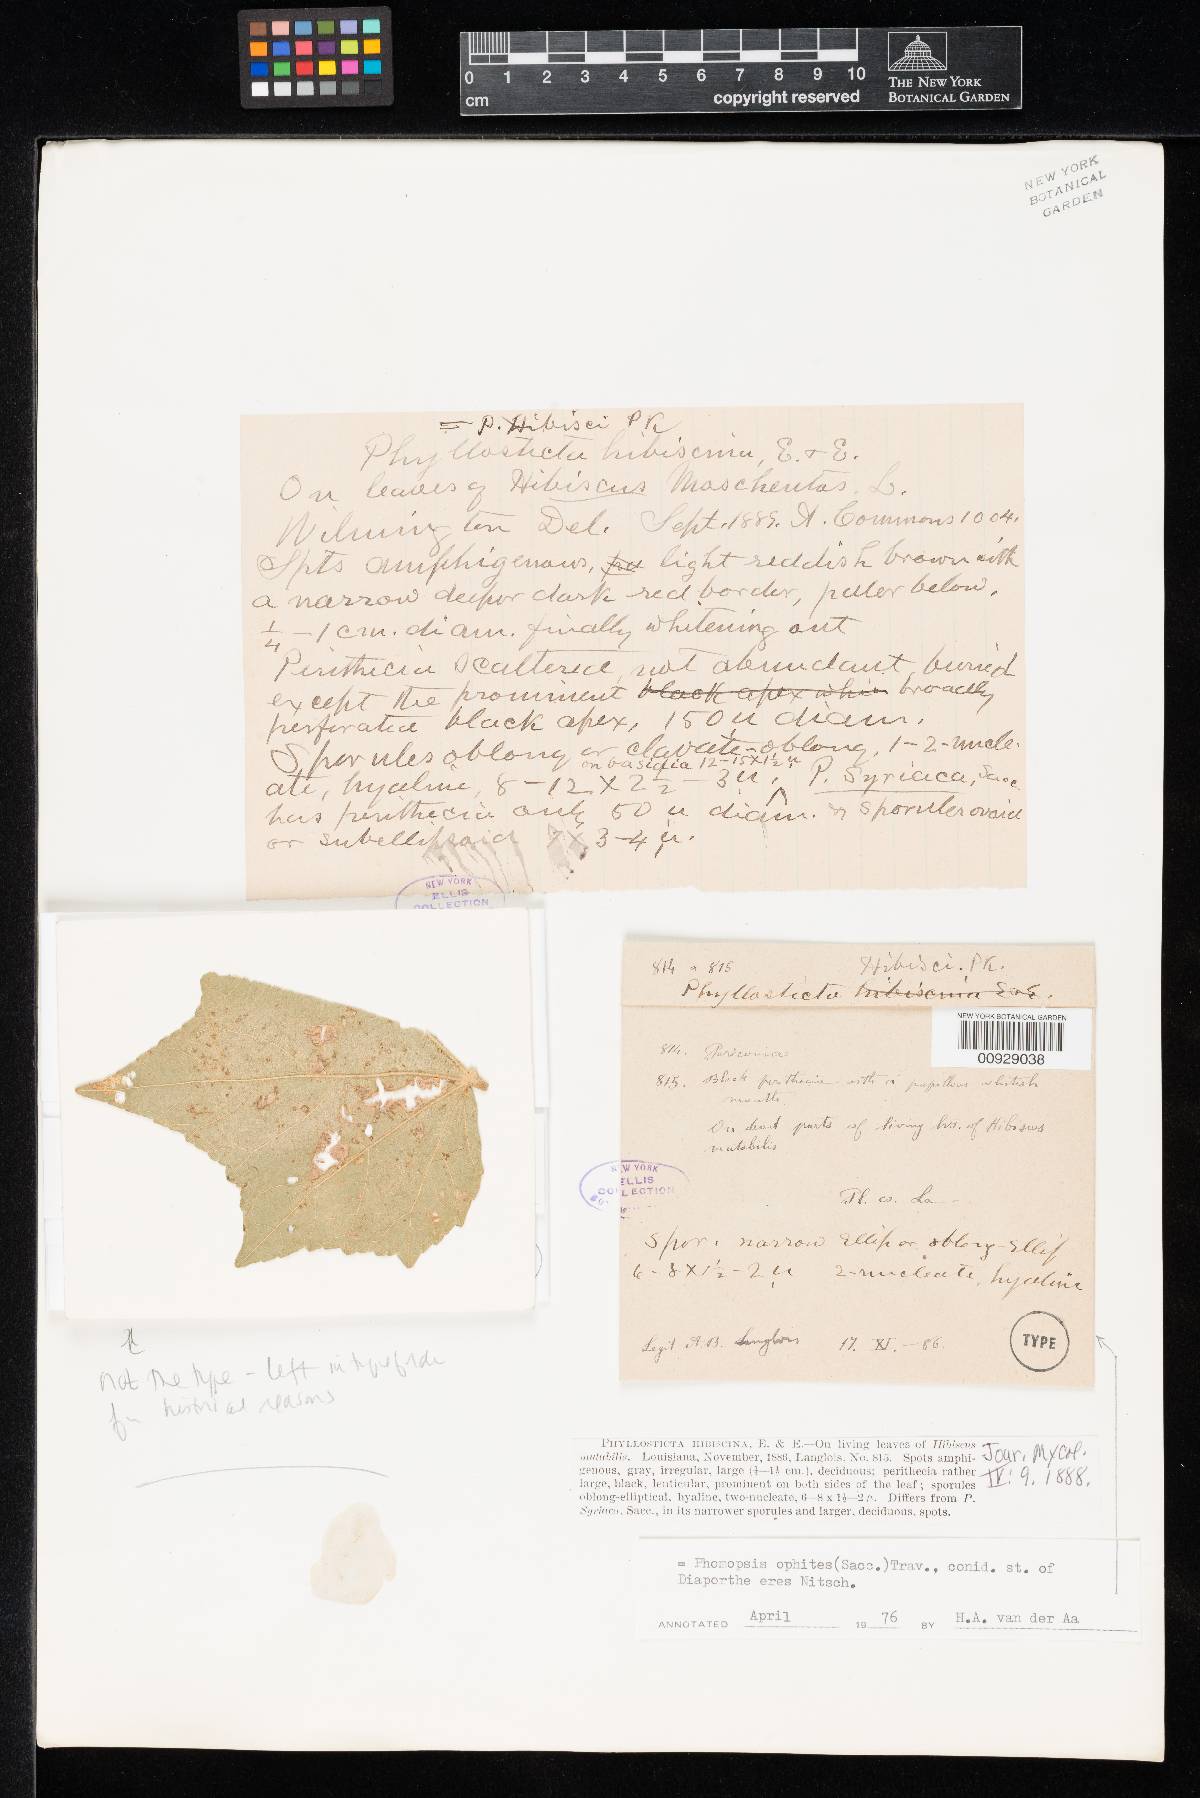 0 1 2 3 4 5 6 7 8 9 10
cm
copyright reserved
THE NEW YORK
BOTANICAL GARDEN
NEW YORK
BOTANICAL
GARDEN
= P. Hibisci PK
Phyllosticta hibiscina, E. & E.
On leaves of Hibiscus Moscheutos. L.
Wilmington Del. Sept. 1889. A. Commons 1004.
Spts amphigenous, light reddish brown with
a narrow deeper dark red border, paler below,
1/4 - 1 cm. diam. finally whitening out
Perithecia scattered, not abundant, buried
except the prominent black apex broadly
perforated black apex, 150 µ diam.
Sporules oblong or clavate-oblong, 1-2-nucle-
on basidia 12-15 x 1½ µ
ate, hyaline, 8-12 x 2½ - 3 µ. P. Syriaca, Sacc
has perithecia only 50 µ diam. & sporules ovoid
or subellipsoid 7 x 3-4 µ.
NEW YORK
ELLIS
COLLECTION
814 & 815 Hibisci. PK.
Phyllosticta hibiscina E & E.
NEW YORK BOTANICAL GARDEN
00929038
814. Periconia
815. Black perithecia with a papillose whitish
mouth.
On dead parts of living lvs. of Hibiscus
mutabilis
NEW YORK
ELLIS
COLLECTION
La
Spor. narrow ellip or oblong-ellip
6-8 x 1½-2 µ 2-nucleate, hyaline
Legit A.B. Langlois 17. XI. - 86.
TYPE
not the type - left in type folder
for historical reasons
PHYLLOSTICTA HIBISCINA, E. & E.—On living leaves of Hibiscus
mutabilis. Louisiana, November, 1886, Langlois, No. 815. Spots amphi-
genous, gray, irregular, large (½—1½ cm.), deciduous; perithecia rather
large, black, lenticular, prominent on both sides of the leaf; sporules
oblong-elliptical, hyaline, two-nucleate, 6—8 x 1½—2 µ. Differs from P.
Syriaca, Sacc., in its narrower sporules and larger, deciduous, spots.
Jour. Mycol.
IV: 9. 1888.
= Phomopsis ophites(Sacc.)Trav., conid. st. of
Diaporthe eres Nitsch.
ANNOTATED April 1976 BY H.A. van der Aa